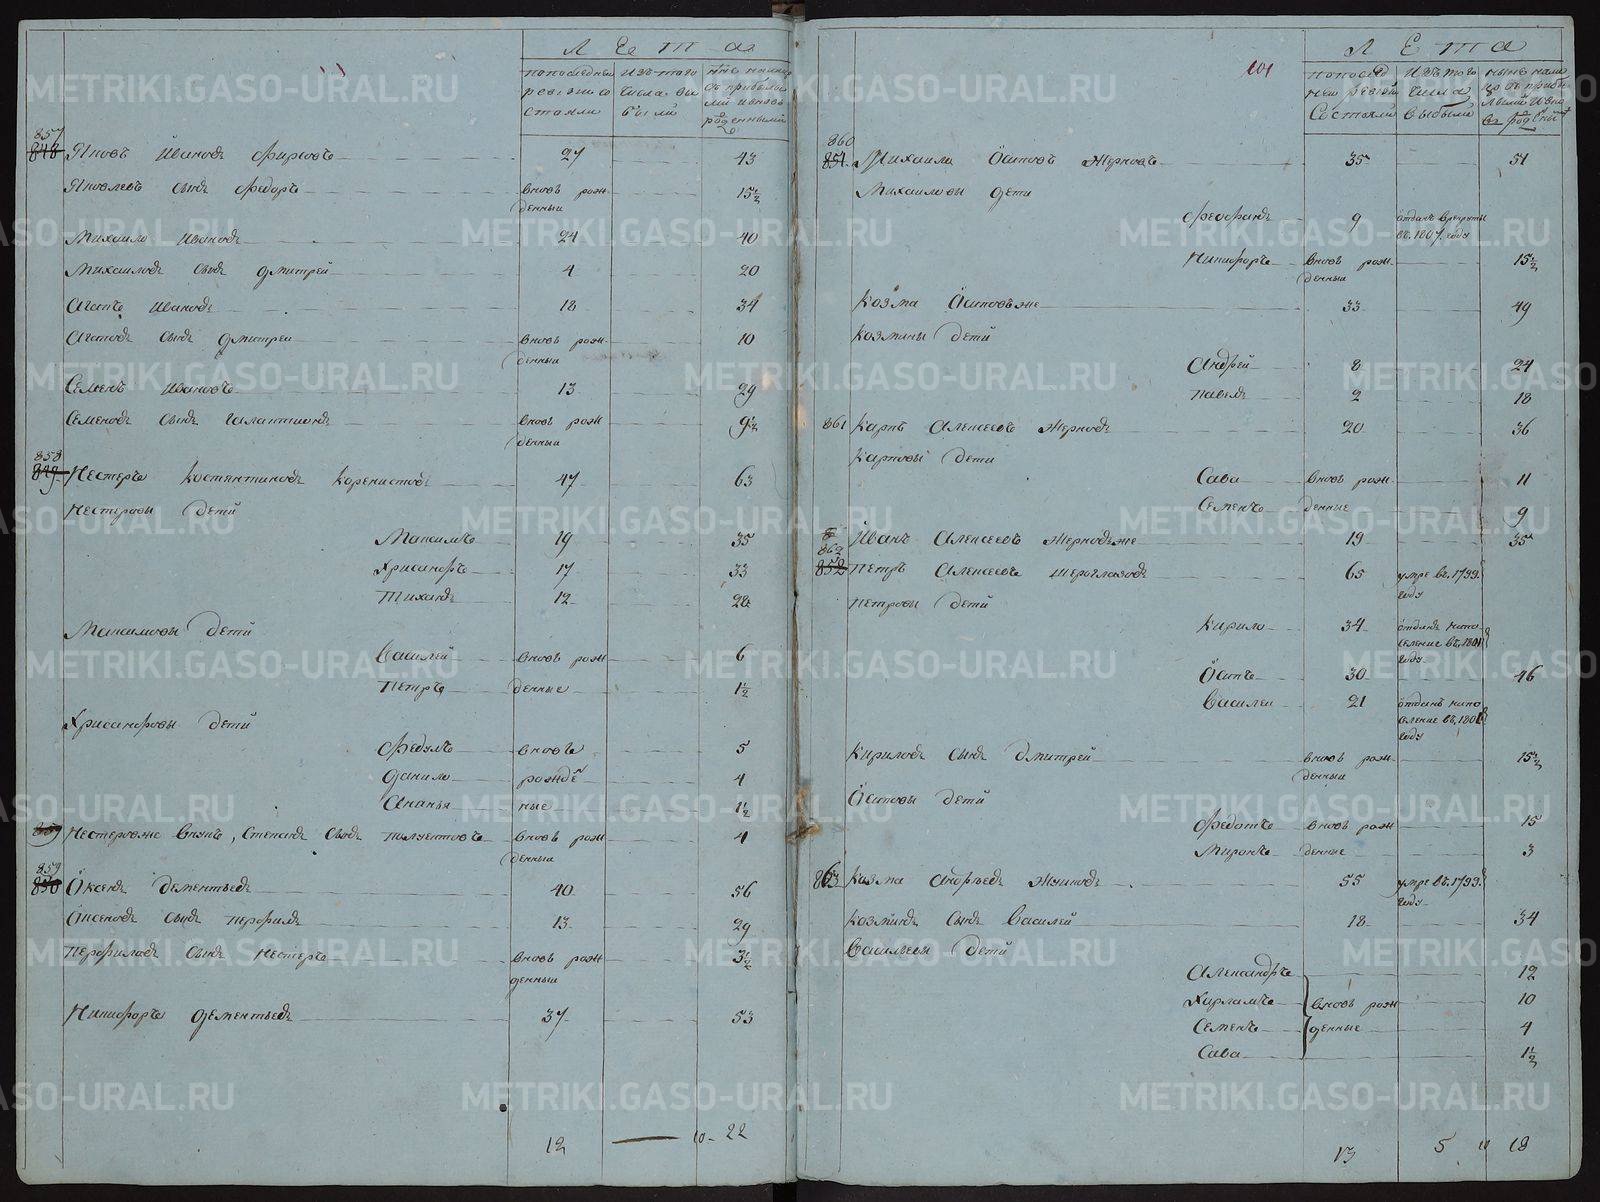 Лета
попоследней ревизии состояли
изъ того числа выбыли
ныне налицо съ прибылыми и вновь рожденными
857
848 Яковъ Ивановъ Фирсовъ 27 43
Яковлевъ сынъ Федоръ вновь рож 15½
денный
Михаило Ивановъ 24 40
Михаиловъ сынъ Дмитрей 4 20
Агапъ Ивановъ 18 34
Агаповъ сынъ Дмитреи вновь рож 10
денныи
Семенъ Ивановъ 13 29
Семеновъ сынъ Галактионъ вновь рож 9½
денный
858
849 Нестеръ Костянтиновъ Коренистовъ 47 63
Нестеровы дети
Максимъ 19 35
Хрисанфъ 17 33
Тиханъ 12 28
Максимовы дети
Василей вновь рож 6
Петръ денные 1½
Хрисанфовы дети
Федулъ вновь 5
Данило рожден 4
Ананья ные 1½
Нестеровже внукъ, Степановъ сынъ Полуектовъ вновь рож 4
денныи
859
850 Оксенъ Дементьевъ 40 56
Оксеновъ сынъ Перфилъ 13 29
Перфиловъ сынъ Нестеръ вновь рож 3½
денныи
Никифоръ Дементьевъ 37 53
12 10 22
101
Лета
попоследней ревизии Состояли
Изъ того числа выбыли
ныне налицо съ прибылыми и вновь рожденными
860
851 Михаило Осиповъ Жерновъ 35 51
Михаиловы дети
Феофанъ 9 отданъ врекруты
въ 1807 году
Никифоръ вновь рож 15½
денный
Козма Осиповъже 33 49
Козмины дети
Андрей 8 24
Павелъ 2 18
861 Карпъ Алексеевъ Жерновъ 20 36
Карповы дети
Сава вновь рож 11
Семенъ денные 9
Иванъ Алексеевъ Жерновъже 19 35
862
852 Петръ Алексеевъ 65 умре въ 1799
году
Петровы дети
Кирило 34 отданъ напо
селение въ 1801
году
Осипъ 30 46
Василеи 21 отданъ напо
селение въ 1801
году
Кириловъ сынъ Дмитрей вновь рож 15½
денныи
Осиповы дети
Федотъ вновь рож 15
Миронъ денные 3
863 Козма Андреевъ Жуиковъ 55 умре въ 1799
году
Козминъ сынъ Василей 18 34
Васильевы дети
Александръ 12
Харламъ вновь рож 10
Семенъ денные 4
Сава 1½
13 5 10 18
METRIKI.GASO-URAL.RU